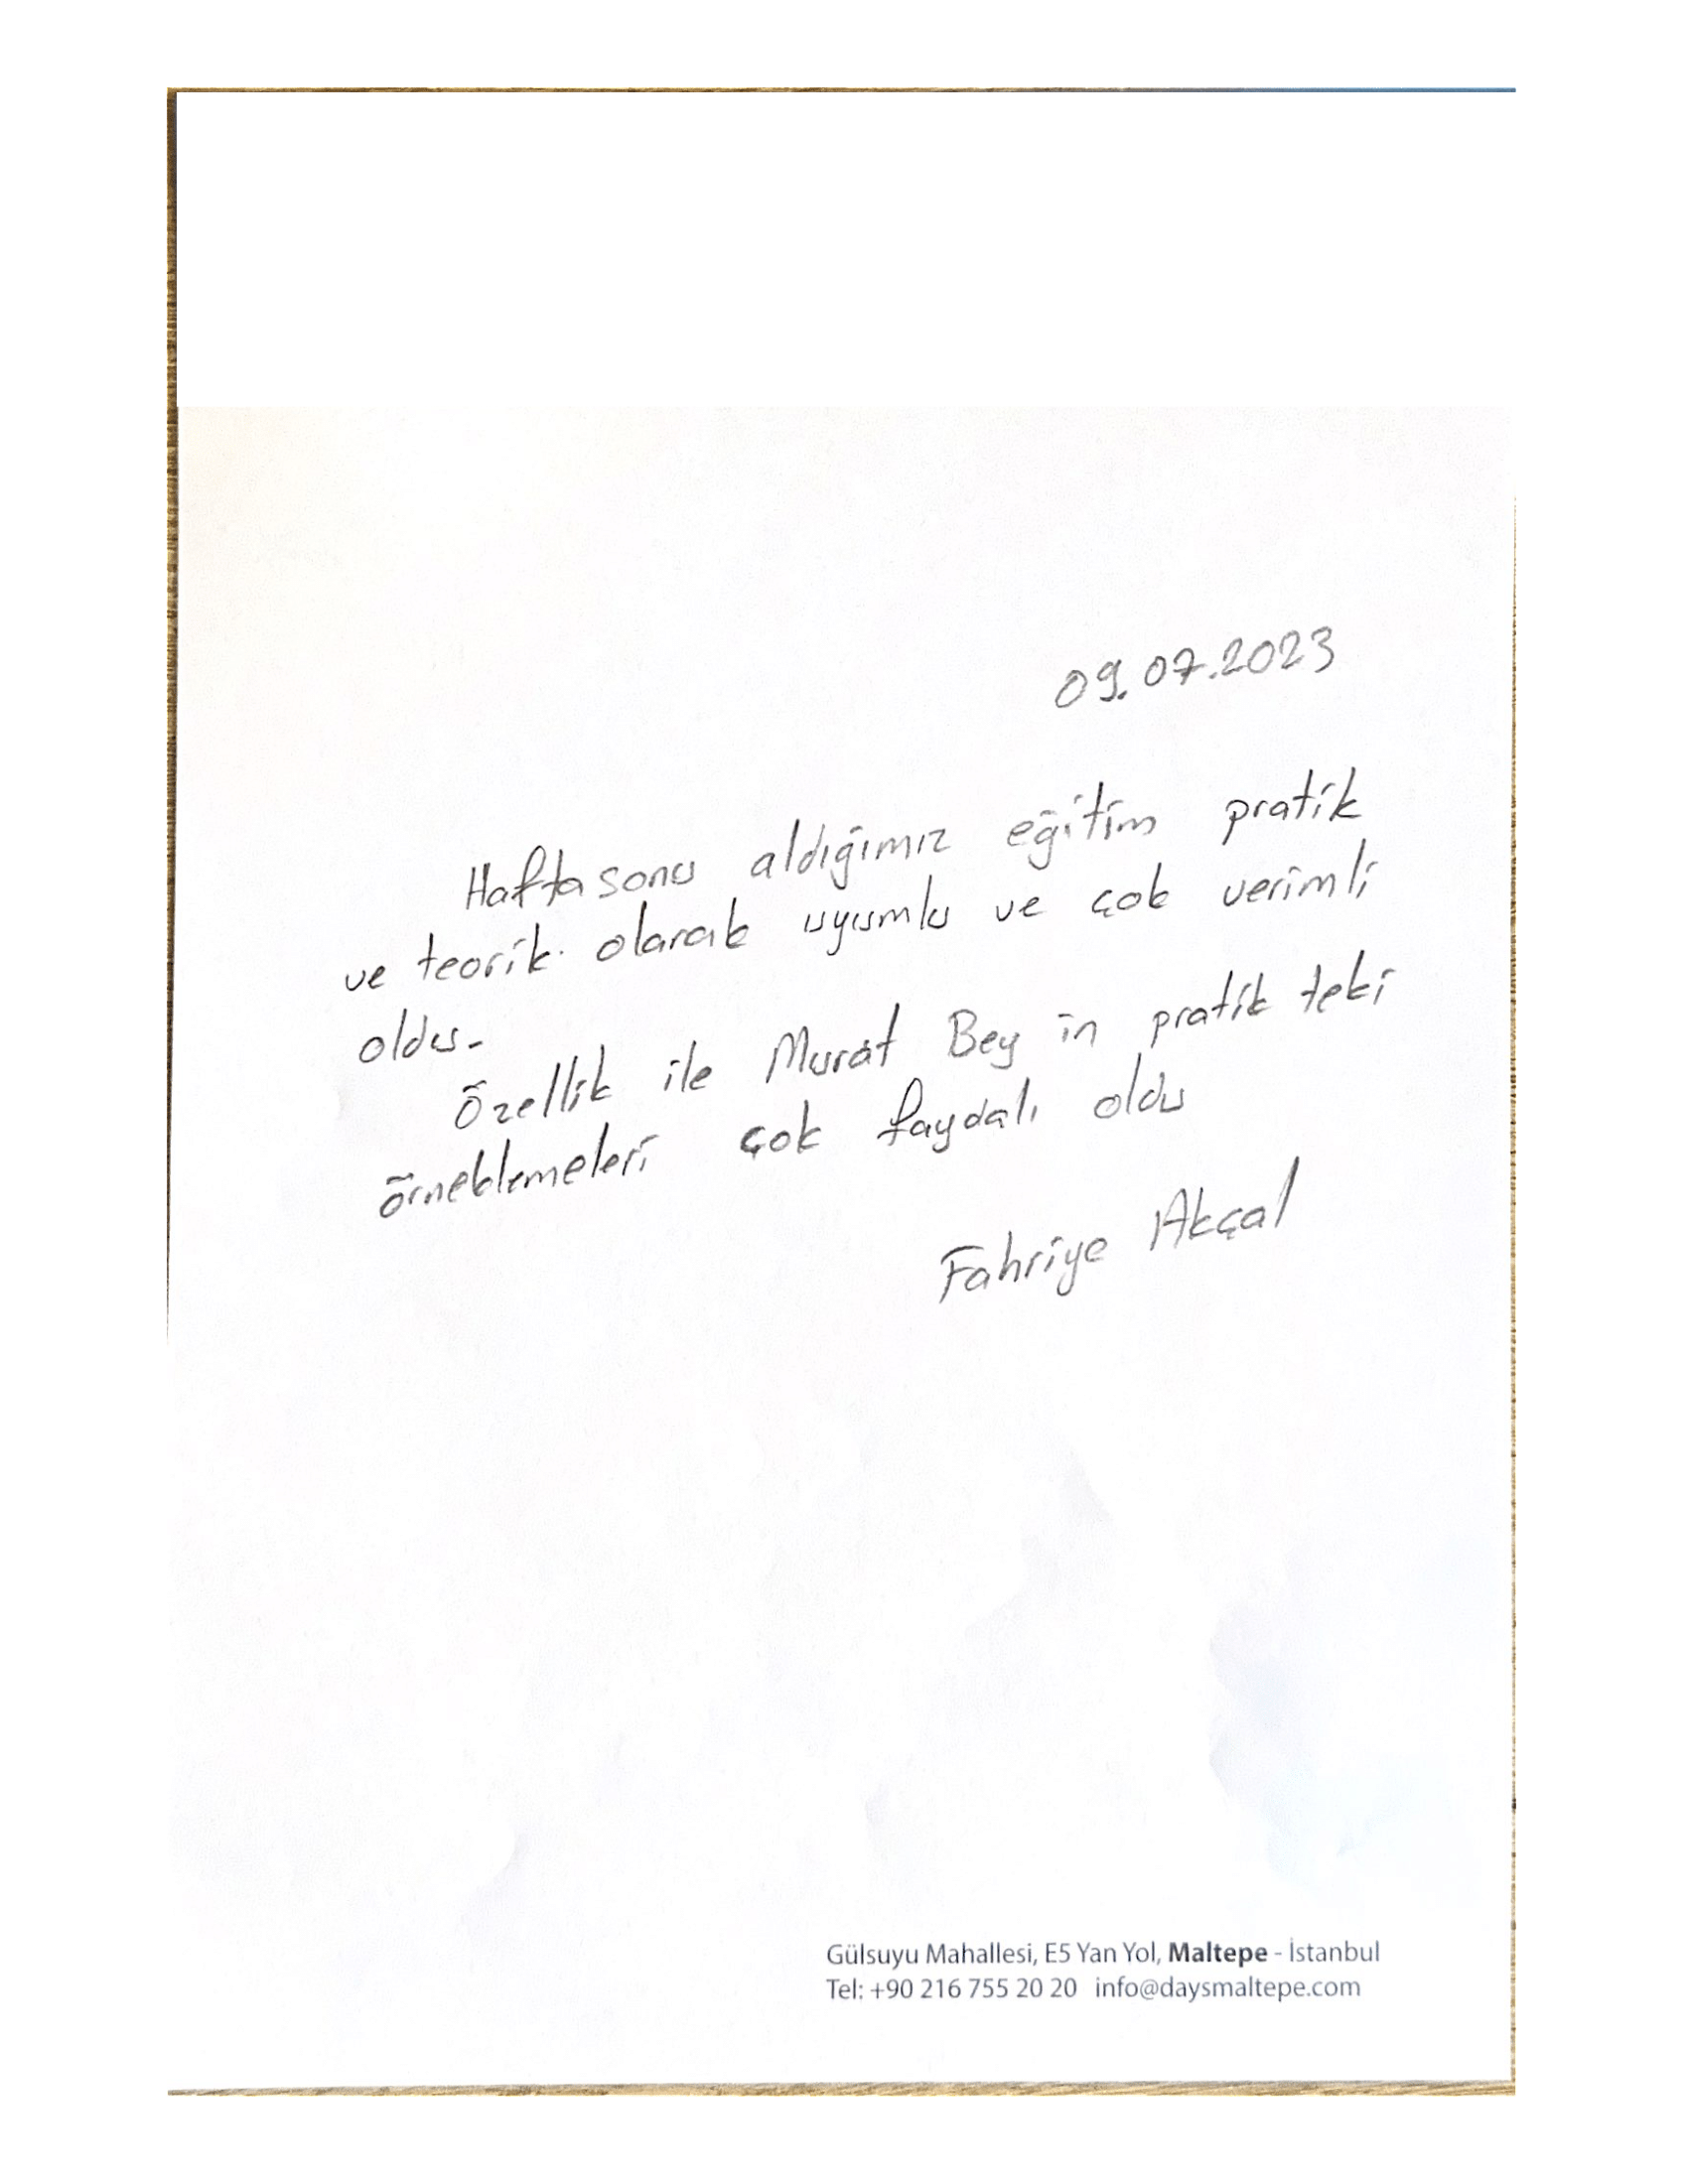 09.07.2023
Hafta sonu aldığımız eğitim pratik
ve teorik. olarak uyumlu ve çok verimli
oldu.
Özellik ile Murat Bey in pratik teki
örneklemeleri çok faydalı oldu
Fahriye Akçal
Gülsuyu Mahallesi, E5 Yan Yol, Maltepe - İstanbul
Tel: +90 216 755 20 20 info@daysmaltepe.com